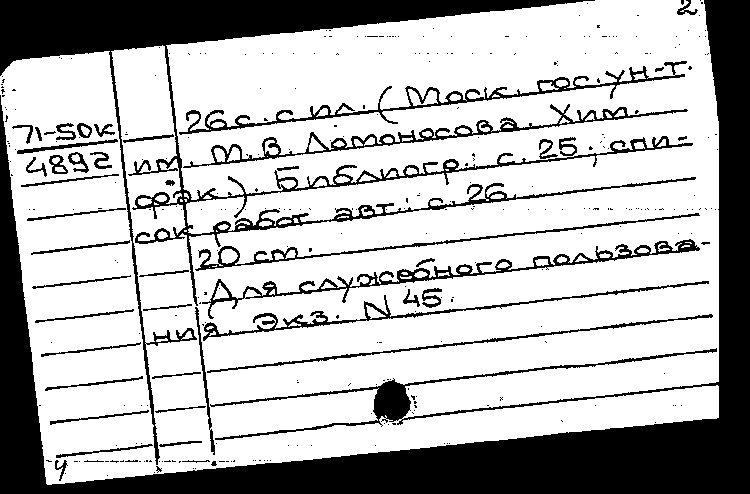 2
71-50к
4892
26 с. с ил. (Моск. гос. ун-т.
им. М.В. Ломоносова. Хим.
фак.). Библиогр.: с. 25; спи-
сок работ авт.: с. 26.
20 см.
Для служебного пользова-
ния. Экз. N 45.
ч